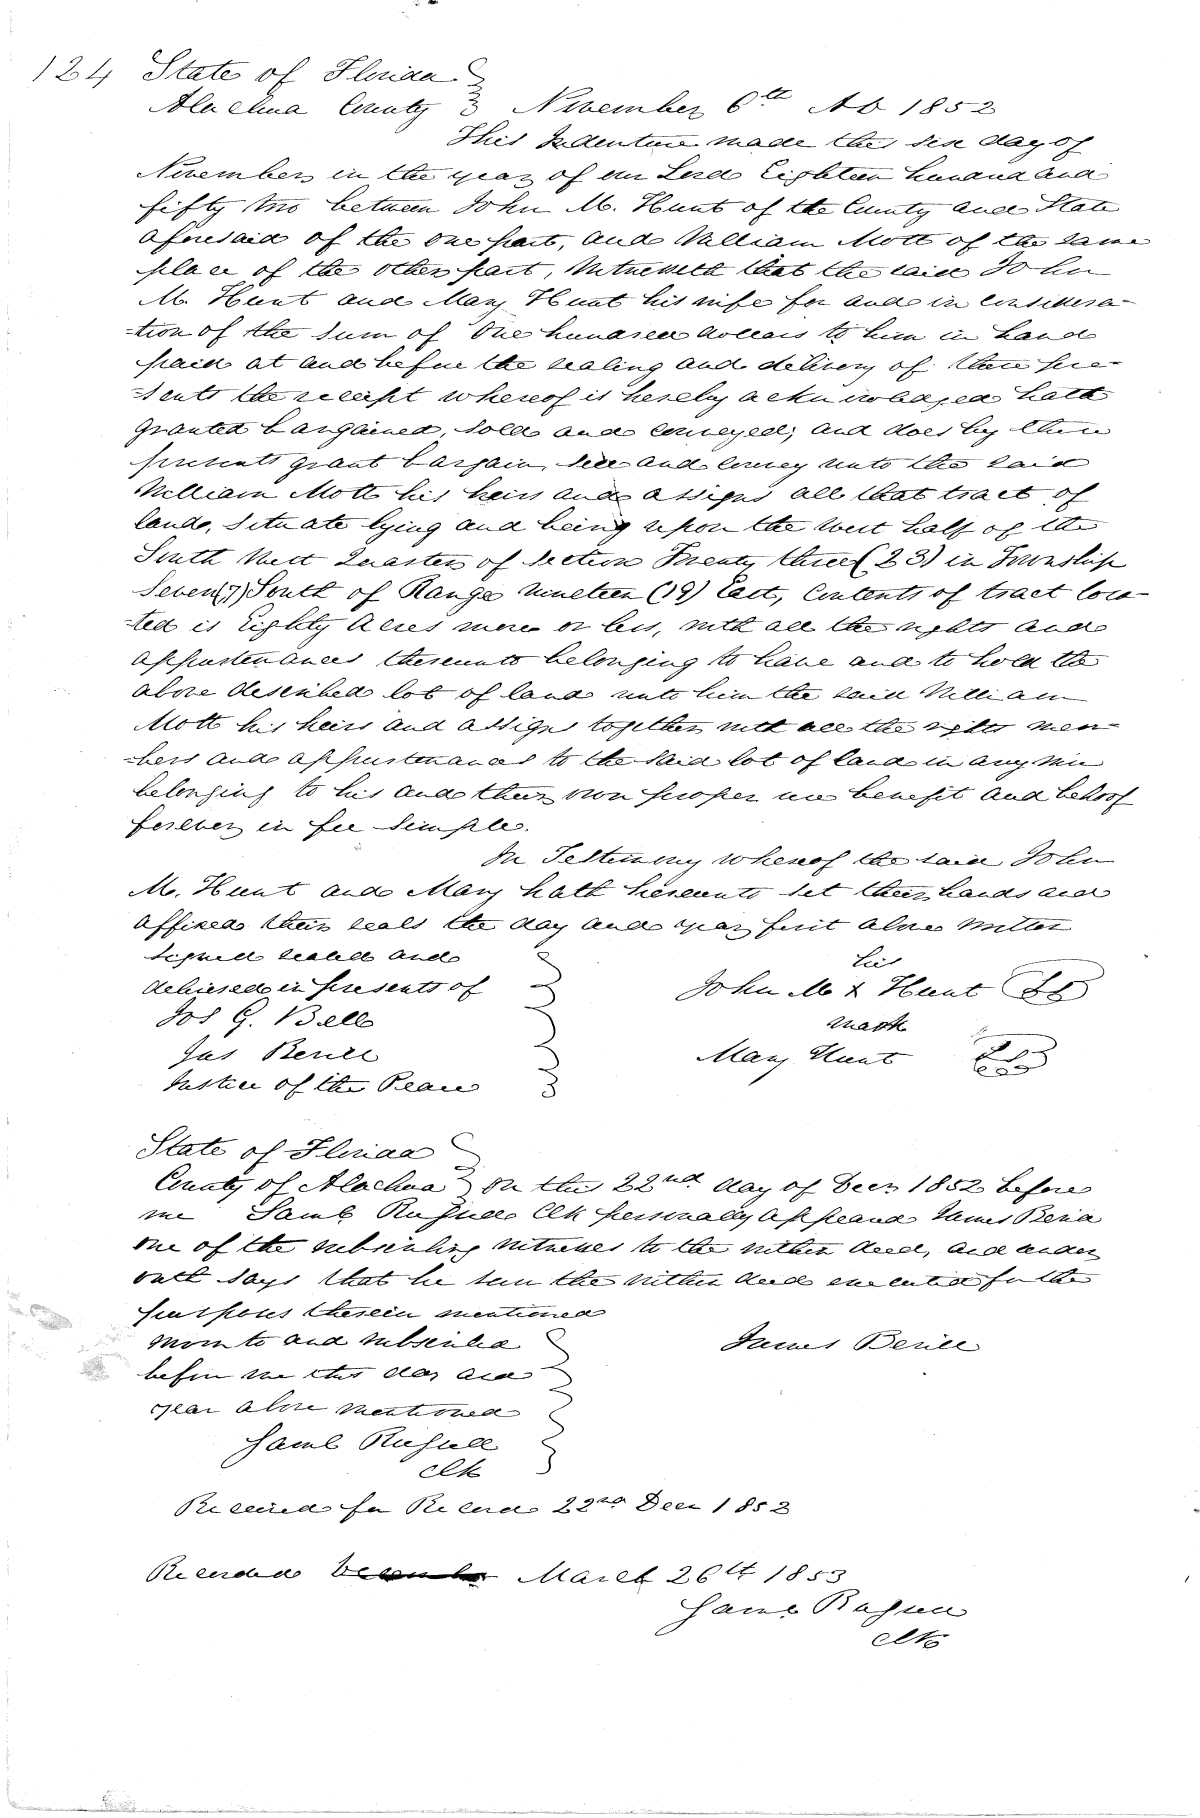 124 State of Florida
Alachua County November 6th AD 1852
This Indenture made this six day of
November in the year of our Lord Eighteen hundred and
fifty two between John M. Hunt of the County and State
aforesaid of the one part, and William Mott of the same
place of the other part, Witnesseth that the said John
M. Hunt and Mary Hunt his wife for and in considera-
-tion of the sum of One hundred dollars to him in hand
paid at and before the sealing and delivery of these pre-
-sents the receipt whereof is hereby acknowledged hath
granted bargained, sold and conveyed, and does by these
presents grant bargain, sell and convey unto the said
William Mott his heirs and assigns all that tract of
land, situate lying and being upon the West half of the
South West Quarter of Section Twenty three (23) in Township
Seven (7) South of Range Nineteen (19) East, Contents of tract loca-
-ted is Eighty Acres more or less, with all the rights and
appurtenances thereunto belonging to have and to hold the
above described lot of land unto him the said William
Mott his heirs and assigns together with all the rights mem-
-bers and appurtenances to the said lot of land in any wise
belonging to his and their own proper use benefit and behoof
forever in fee simple.
In Testimony whereof the said John
M. Hunt and Mary hath hereunto set their hands and
affixed their seals the day and year first above written
Signed sealed and his
delivered in presents of John M X Hunt LS
Jos G. Bell mark
Jas Berill Mary Hunt LS
Justice of the Peace
State of Florida
County of Alachua On this 22nd day of Decr 1852 before
me Saml Russell Clk personally appeard James Berill
one of the subscribing witnesses to the within deed, and under
oath says that he saw the within deed executed for the
purposes therein mentioned
Sworn to and subscribed James Berill
before me this day and
year above mentioned
Saml Russell
Clk
Received for Record 22nd Decr 1852
Recorded March 26th 1853
Saml Russell
Clk